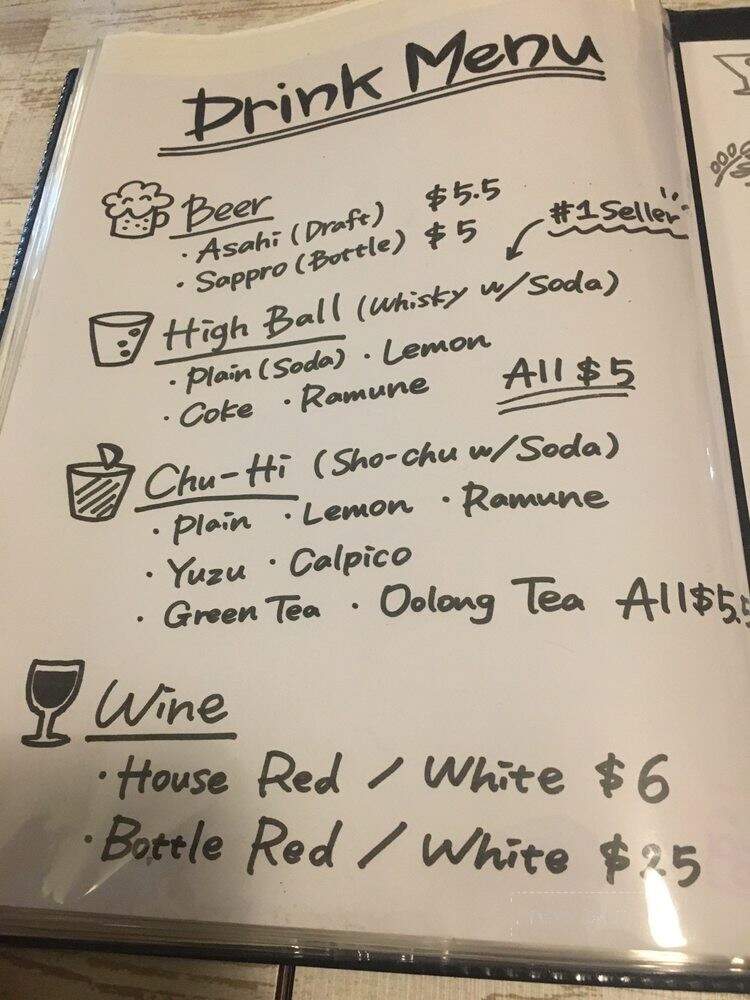 Drink Menu
Beer
· Asahi (Draft) $5.5
· Sappro (Bottle) $5
#1 Seller
High Ball (Whisky w/Soda)
· Plain (Soda) · Lemon
· Coke · Ramune All $5
Chu-Hi (Sho-chu w/Soda)
· Plain · Lemon · Ramune
· Yuzu · Calpico
· Green Tea · Oolong Tea All $5.5
Wine
· House Red / White $6
· Bottle Red / White $25